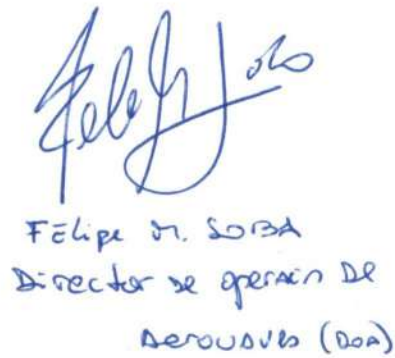 FELipe M. SOBA
Director de operación De
Aeronaves (DOA)